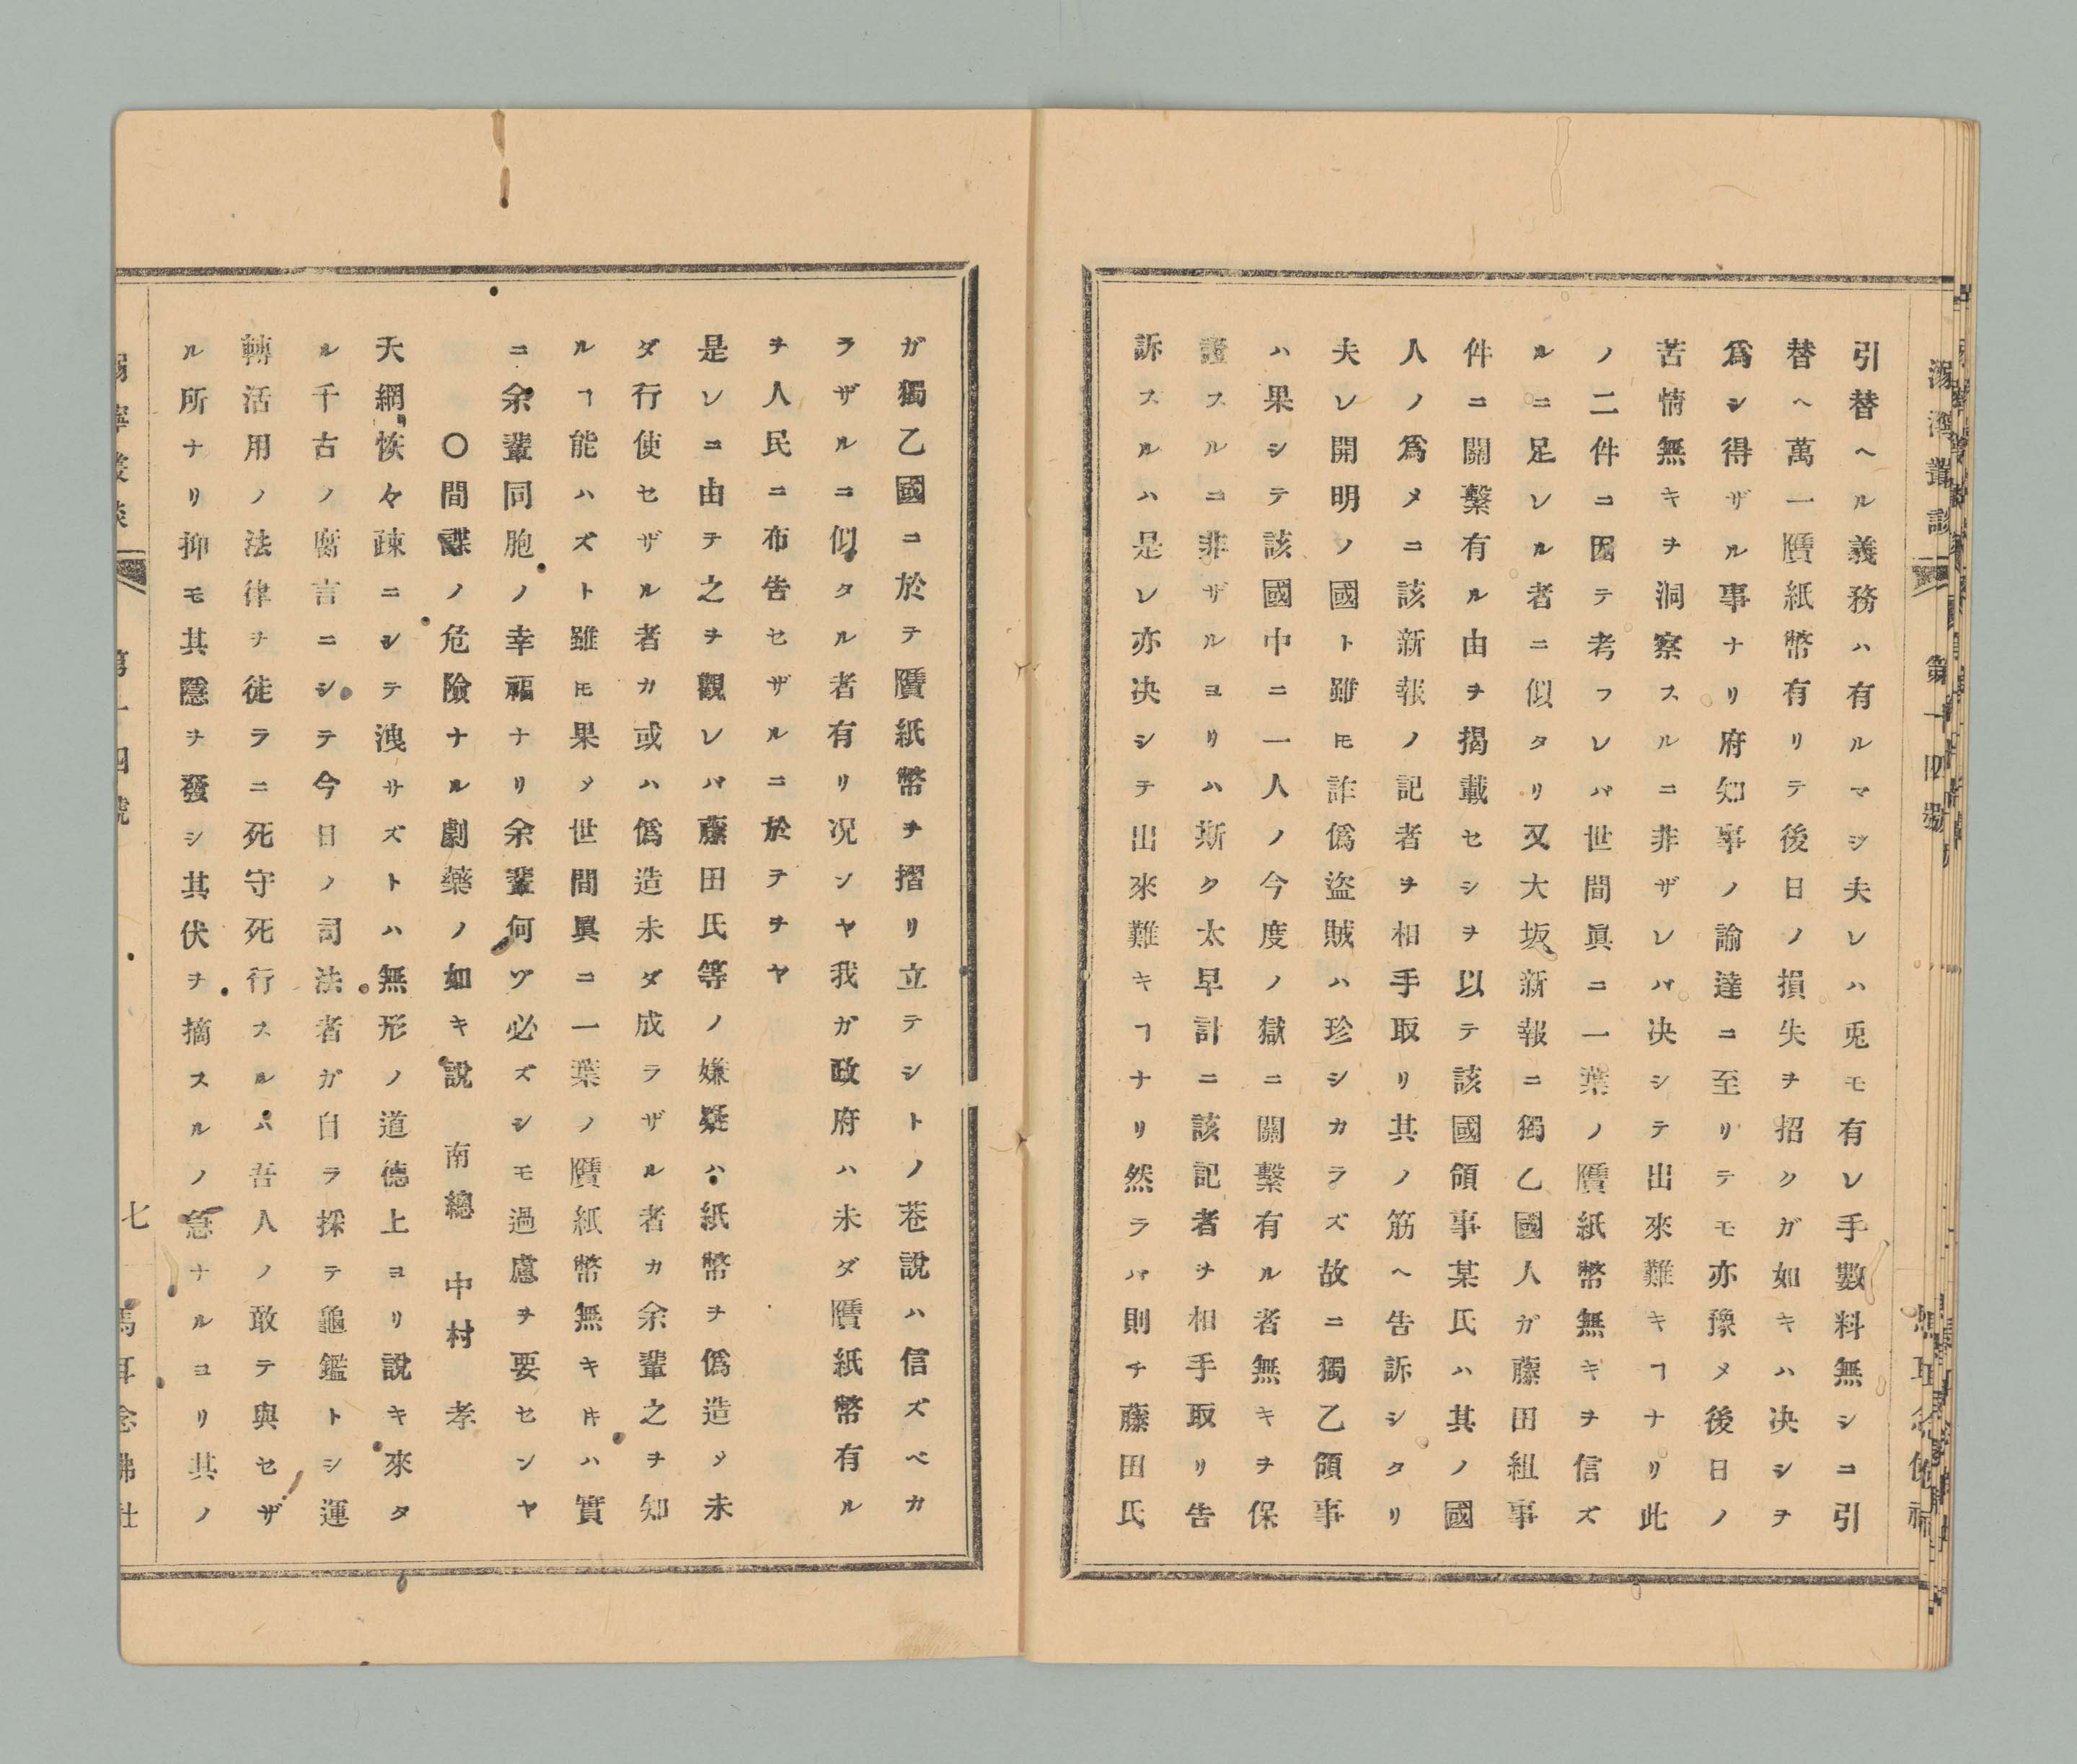 引替ヘル義務ハ有ルマジ夫レハ兎モ有レ手數料無シニ引
替ヘ萬一贋紙幣有リテ後日ノ損失ヲ招クガ如キハ决シヲ
爲シ得ザル事ナリ府知事ノ諭達ニ至リテモ亦豫メ後日ノ
苦情無キヲ洞察スルニ非ザレバ决シテ出來難キヿナリ此
ノ二件ニ因テ考フレバ世間眞ニ一葉ノ贋紙幣無キヲ信ズ
ルニ足レル者ニ似タリ又大坂新報ニ獨乙國人ガ藤田組事
件ニ關繫有ル由ヲ揭載セシヲ以テ該國領事某氏ハ其ノ國
人ノ爲メニ該新報ノ記者ヲ相手取リ其ノ筋ヘ告訴シタリ
夫レ開明ノ國ト雖𪜈詐僞盜賊ハ珍シカラズ故ニ獨乙領事
ハ果シテ該國中ニ一人ノ今度ノ獄ニ關繫有ル者無キヲ保
證スルニ非ザルヨリハ斯ク太早計ニ該記者ヲ相手取リ告
訴スルハ是レ亦决シテ出來難キヿナリ然ラバ則チ藤田氏
ガ獨乙國ニ於テ贋紙幣ヲ摺リ立テシトノ巷說ハ信ズベカ
ラザルニ似タル者有リ况ンヤ我ガ政府ハ未ダ贋紙幣有ル
ヲ人民ニ布告セザルニ於テヲヤ
是レニ由テ之ヲ觀レバ藤田氏等ノ嫌疑ハ紙幣ヲ僞造メ未
ダ行使セザル者カ或ハ僞造未ダ成ラザル者カ余輩之ヲ知
ルヿ能ハズト雖𪜈果メ世間眞ニ一葉ノ贋紙幣無キ𪜈ハ實
ニ余輩同胞ノ幸福ナリ余輩何ゾ必ズシモ過慮ヲ要センヤ
〇間諜ノ危險ナル劇藥ノ如キ說 南總 中村 孝
天網恢々疎ニシテ洩サズトハ無形ノ道德上ヨリ說キ來タ
ル千古ノ腐言ニシテ今日ノ司法者ガ自ラ採テ龜鑑トシ運
轉活用ノ法律ヲ徒ラニ死守死行スルハ吾人ノ敢テ與セザ
ル所ナリ抑モ其隱ヲ發シ其伏ヲ摘スルノ急ナルヨリ其ノ
第十四號
七